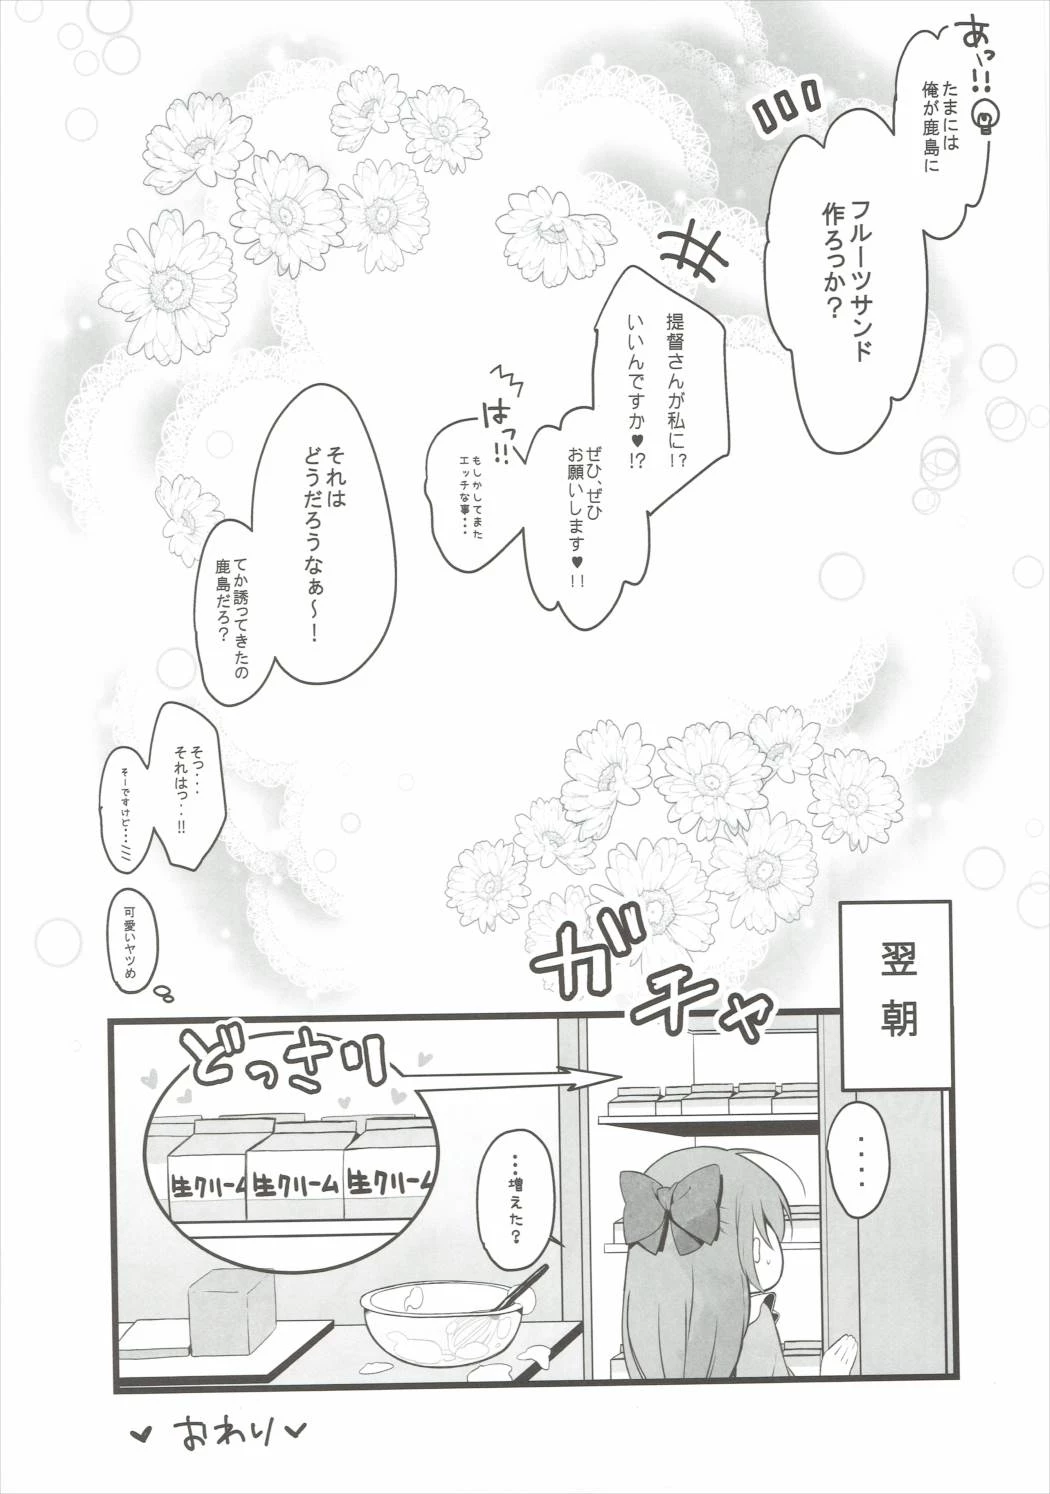 あっ!!
たまには
俺が鹿島に
フルーツサンド
作ろっか？
提督さんが私に!?
いいんですか♥!?
ぜひ、ぜひ
お願いします♥!!
はっ!!
もしかしてまた
エッチな事・・・
それは
どうだろうなぁ～！
てか誘ってきたの
鹿島だろ？
そっ・・・
それはっ・・!!
そーですけど・・・///
可愛いヤツめ
翌朝
ガチャ
・・・・
どっさり
生クリーム
生クリーム
生クリーム
・・・増えた？
♥ おわり ♥